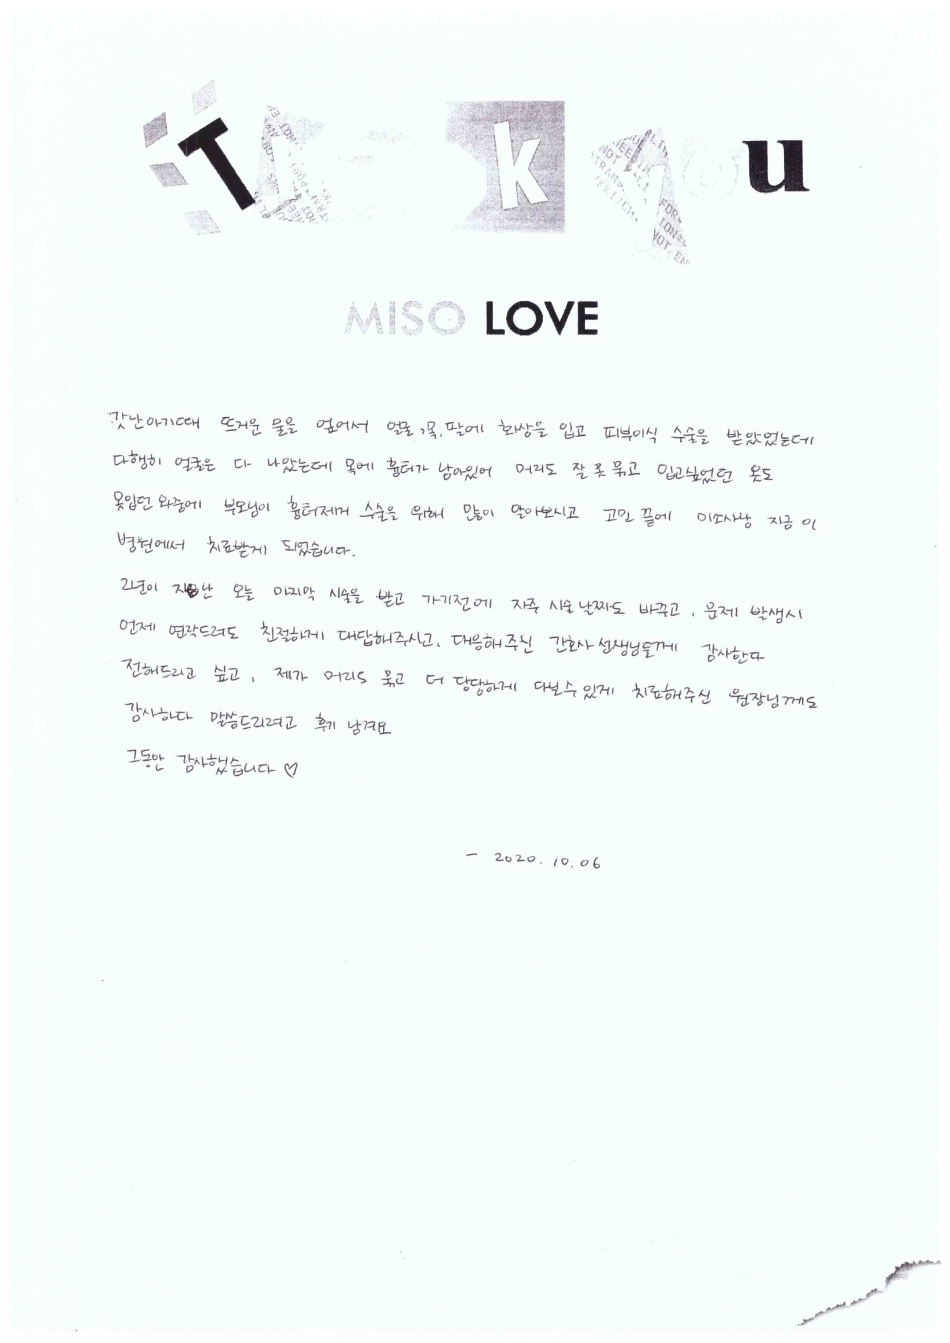 Thank you
MISO LOVE
갓난아기때 뜨거운 물을 엎어서 얼굴,목,팔에 화상을 입고 피부이식 수술을 받았었는데
다행히 얼굴은 다 나았는데 목에 흉터가 남아있어 머리도 잘 못 묶고 입고싶었던 옷도
못입던 와중에 부모님이 흉터제거 수술을 위해 많이 알아보시고 고민 끝에 미소사랑 지금 이
병원에서 치료받게 되었습니다.
2년이 지난 오늘 마지막 시술을 받고 가기전에 자주 시술 날짜도 바꾸고, 문제 발생시
언제 연락드려도 친절하게 대답해주시고, 대응해주신 간호사 선생님들께 감사한다
전해드리고 싶고, 제가 머리도 묶고 더 당당하게 다닐수 있게 치료해주신 원장님께도
감사하다 말씀드리려고 후기 남겨요
그동안 감사했습니다 ♡
- 2020. 10. 06